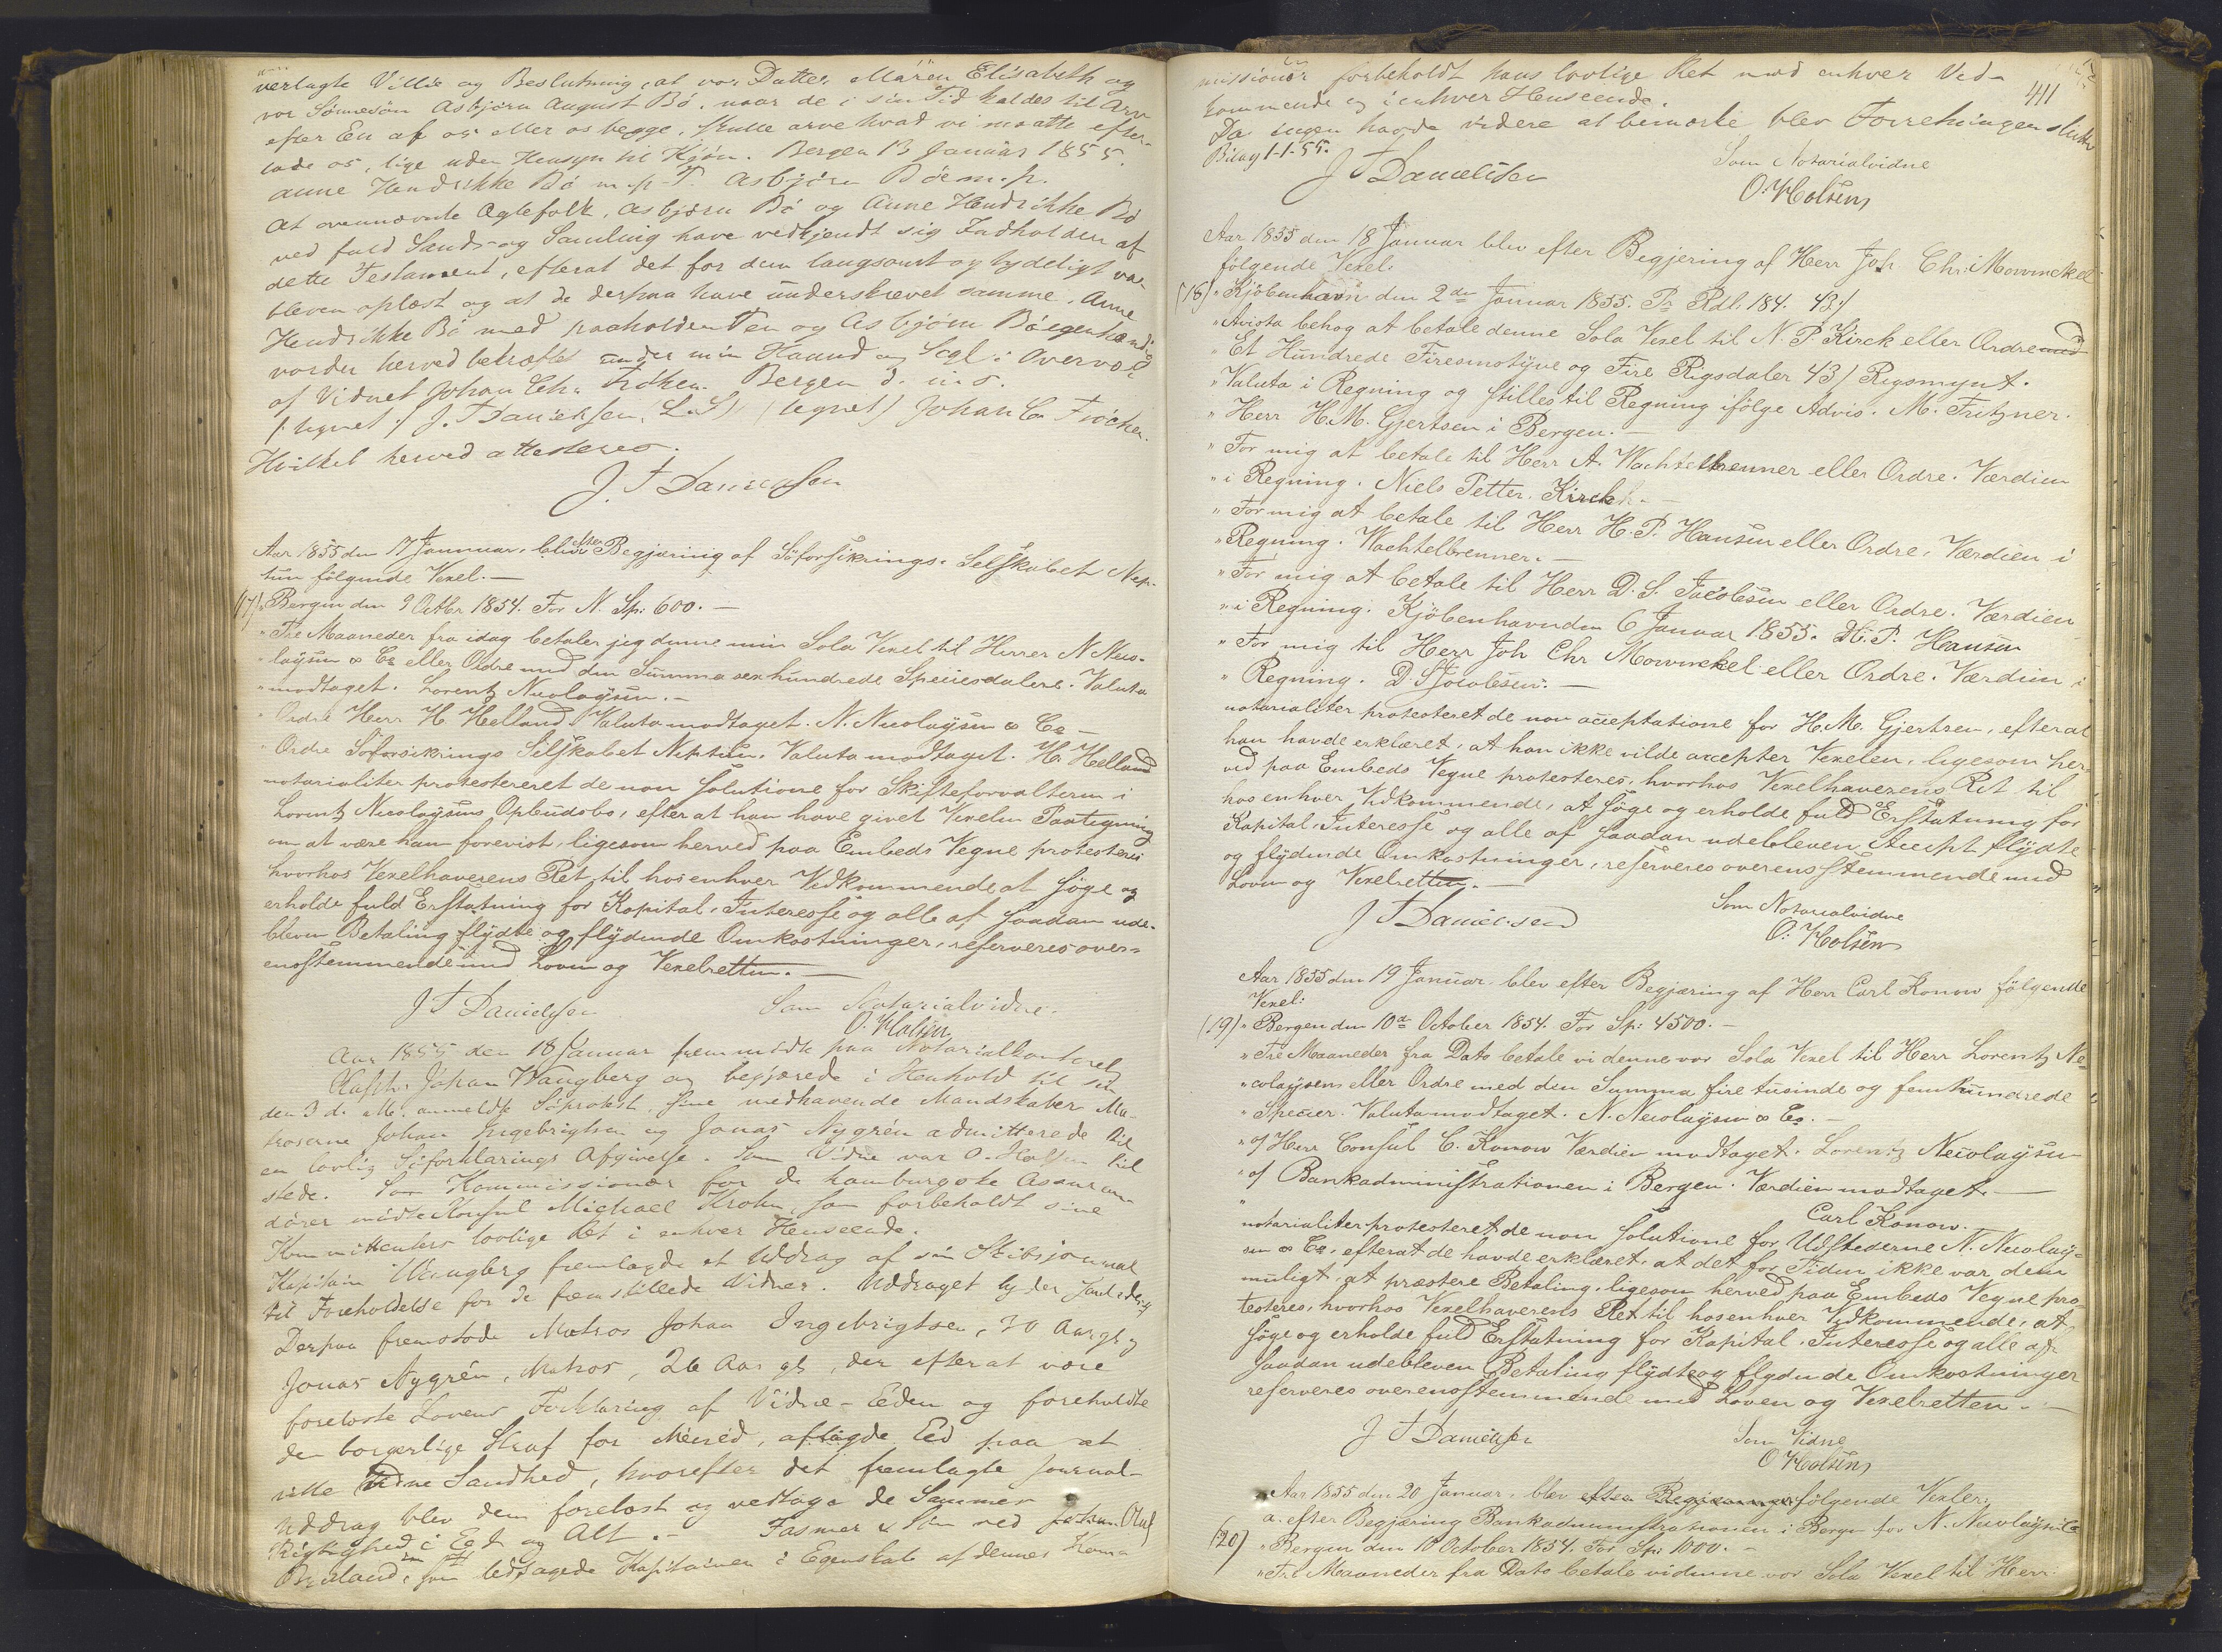 verlagte Villie og Beslutning, at vor Datter Maren Elisabeth og
vor Sönnesön Asbjörn August Bö, naar de i sin Tid kaldes til Arv
efter En af os eller os begge, skulle arve hvad vi maatte efter-
lade os, lige uden Hensyn til Kjön. Bergen 13 Januar 1855.
Anne Hendrikke Bö m.p.T. Asbjörn Böe m.p.
At ovennævnte Ægtefolk, Asbjörn Bö og Anne Hendrikke Bö
ved fuld Sands og Samling have vedkjendt sig Indholden af
dette Testament, efterat det for dem langsomt og tydeligt var
bleven oplæst og at de derpaa have underskrevet samme, Anne
Hendrikke Bö med paaholden Pen og Asbjörn Bö egenhændig
vorder herved bekræftet under min Haand og Segl i Overvær
af Vidnet Johan Chr. Fröchen. Bergen d. u. s.
(:tegnet:) J. T Danielsen. (L.S) (tegnet) Johan Ch Fröchen.
Hvilket herved attesteres.
J. T Danielsen
Aar 1855 den 17 Januuar, blev efter Begjæring af Söforsikrings-Selskabet Nep-
tun følgende Vexel.—
(17) „Bergen den 9 Octbr 1854. For N. Sp: 600.—
„Tre Maaneder fra idag betaler jeg denne min Sola Vexel til Herrer N Nico-
„laysen & Co eller Ordre med den Summa sexhundrede Speciesdalere. Valuta
„modtaget. Lorentz Nicolaysen.—
„Ordre Herr H. Helland Valuta modtaget. N. Nicolaysen & Co—
„Ordre Söforsikrings Selskabet Neptun, Valuta modtaget. H. Helland
notarialiter protestereret de non solutione for Skifteforvalteren i
Lorentz Nicolaysens Opbudsbo, efterat han have givet Vexelen Paategning
om at være ham forevist, ligesom herved paa Embeds Vegne protesteres
hvorhos Vexelhaverens Ret til hos enhver Vedkommende at søge og
erholde fuld Erstatning for Kapital, Interesse og alle af saadan ude-
bleven Betaling flydte og flydende Omkostninger, reserveres over-
ensstemmende med Loven og Vexelretten.—
J T Danielsen
Som Notarialvidne.
O. Holsen
Aar 1855 den 18 Januar fremmödte paa Notarialkontoret
Kapt. Johan Wangberg og begjærede i Henhold til sin
den 3 d. M. anmeldte Söprotest, sine medhavende Mandskaber Ma-
troserne Johan Ingebrigtsen og Jonas Nygrén admitterede til
en lovlig Söforklarings Afgivelse. Som Vidne var O. Holsen til
stede. Som Kommissionær for de hamburgske Assuran-
dörer mödte Konsul Michael Krohn, som forbeholdt sine
Kommittenters lovlige Ret i enhver Henseende.
Kapitain Wangberg fremlagde et Uddrag af sin Skibsjournal
til Foreholdelse for de fremstillede Vidner. Uddraget lyder saaledes:
Derpaa fremstode Matros Johan Ingebrigtsen, 30 Aar gl og
Jonas Nygrén, Matros, 26 Aar gl, der efterat være
foreloste Lovens Forklaring af Vidne-Eeden og foreholdte
den borgerlige Straf for Meneed, aflagde Eed paa at
ville vidne Sandhed, hvorefter det fremlagte Journal-
Uddrag blev dem forelæst og vedtoge de Sammes
Rigtighed i Eet og Alt.— Fasmer & Sön ved Olaf
Byeland, som ledsagede Kapitainen i Egenskab af dennes Kom-
411
missionær forbeholdt hans lovlige Ret mod enhver Ved-
kommende og i enhver Henseende.
Da ingen havde videre at bemærke blev Forretningen sluttet
Bilag 1-1-55.
J T Danielsen
Som Notarialvidne
O. Holsen
Aar 1855 den 18 Januar blev efter Begjering af Herr Joh Chr: Mowinckel
følgende Vexel:
(18) „Kjöbenhavn den 2den Januar 1855. Pr Rdl. 184. 43/
„Avista behag at betale denne Sola Vexel til N. P. Kirck eller Ordre med
„Et Hundrede Firesinotyve og Fire Rigsdaler 43/ Rigsmynt.
„Valuta i Regning og stilles til Regning ifölge Advis. M. Fritzner.
„Herr H.M. Gjertsen i Bergen.—
„For mig at betale til Herr A. Wachtelbrenner eller Ordre. Værdien
„i Regning. Niels Petter Kirck.—
„For mig at betale til Herr H. P. Hansen eller Ordre, Værdien i
„Regning. Wachtelbrenner.—
„For mig at betale til Herr D. S. Jacobsen eller Ordre. Værdien
„i Regning. Kjöbenhavn den 6 Januar 1855. H. P. Hansen
„For mig til Herr Joh Chr Mowinckel eller Ordre. Værdien i
„Regning. D. S Jacobsen.—
notarialiter protesteret de non acceptatione for H.M. Gjertsen, efterat
han havde erklæret, at han ikke vilde accepter Vexelen, ligesom her-
ved paa Embeds Vegne protesteres, hvorhos Vexelhaverens Ret til
hos enhver Vedkommende, at söge og erholde fuld Erstatning for
Kapital, Interesse og alle af saadan udebleven Accept flydte
og flydende Omkostninger, reserveres overensstemmende med
Loven og Vexelretten.—
J T Danielsen
Som Notarialvidne
O. Holsen
Aar 1855 den 19 Januar, blev efter Begjæring af Herr Carl Konow fölgende
Vexel:
(19) „Bergen den 10de October 1854. For Sp: 4500.—
„Tre Maaneder fra Dato betale vi denne vor Sola Vexel til Herr Lorentz Ni-
„colaysen eller Ordre med den Summa fire tusinde og femhundrede
„Specier. Valuta modtaget. N. Nicolaysen & Co.—
„of Herr Consul C. Konow Værdien modtaget. Lorentz Nicolaysen
„of Bankadministrationen i Bergen. Værdien modtaget.—
„ Carl Konow.
notarialiter protesteret de non solutione for Udstederne N. Nicolay-
sen & Co, efterat de havde erklæret, at det for Tiden ikke var dem
muligt, at præstere Betaling, ligesom herved paa Embeds Vegne pro-
testeres, hvorhos Vexelhaverens Ret til hos enhver Vedkommende, at
söge og erholde fuld Erstatning for Kapital, Interesse og alle af
saadan udebleven Betaling flydte og flydende Omkostninger
reserveres overensstemmende med Loven og Vexelretten.—
J T Danielsen
Som Vidne
O Holsen
Aar 1855 den 20 Januar, blev efter Begjæring følgende Vexler:
a. efter Begjæring Bankadministrationen i Bergen for N. Nicolaysen & Co
(20) „Bergen den 10 October 1854. For Sp: 1000.—
„Tre Maaneder fra Dato betale vi denne vor Sola Vexel til Herr